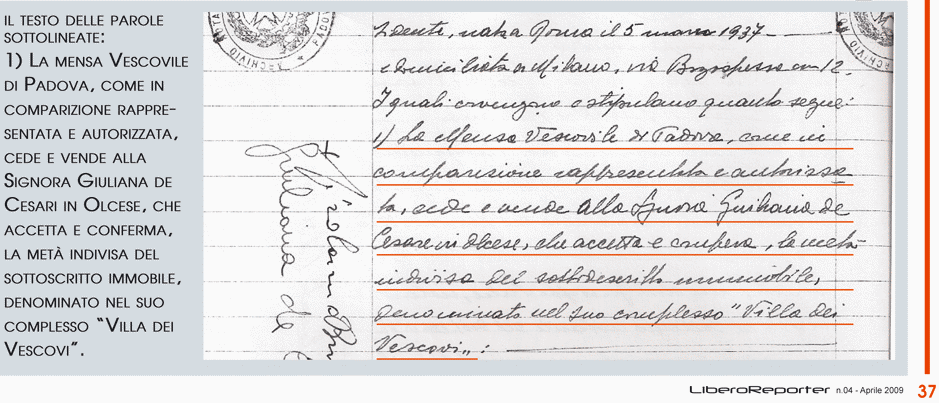 IL TESTO DELLE PAROLE
SOTTOLINEATE:
1) LA MENSA VESCOVILE
DI PADOVA, COME IN
COMPARIZIONE RAPPRE-
SENTATA E AUTORIZZATA,
CEDE E VENDE ALLA
SIGNORA GIULIANA DE
CESARI IN OLCESE, CHE
ACCETTA E CONFERMA,
LA METÀ INDIVISA DEL
SOTTOSCRITTO IMMOBILE,
DENOMINATO NEL SUO
COMPLESSO "VILLA DEI
VESCOVI".
ARCHIVIO
Giuliana de
nata Roma il 5 marzo 1937
domiciliata a Milano, via Borgospesso 12.
I quali convengono e stipulano quanto segue:
1) La Mensa Vescovile di Padova, come in
comparizione rappresentata e autorizza
ta, cede e vende alla Signora Giuliana de
Cesare in Olcese, che accetta e compera, la metà
indivisa del sottodescritto immobile,
denominato nel suo complesso "Villa dei
Vescovi":
LIBEROREPORTER n.04 - Aprile 2009 37